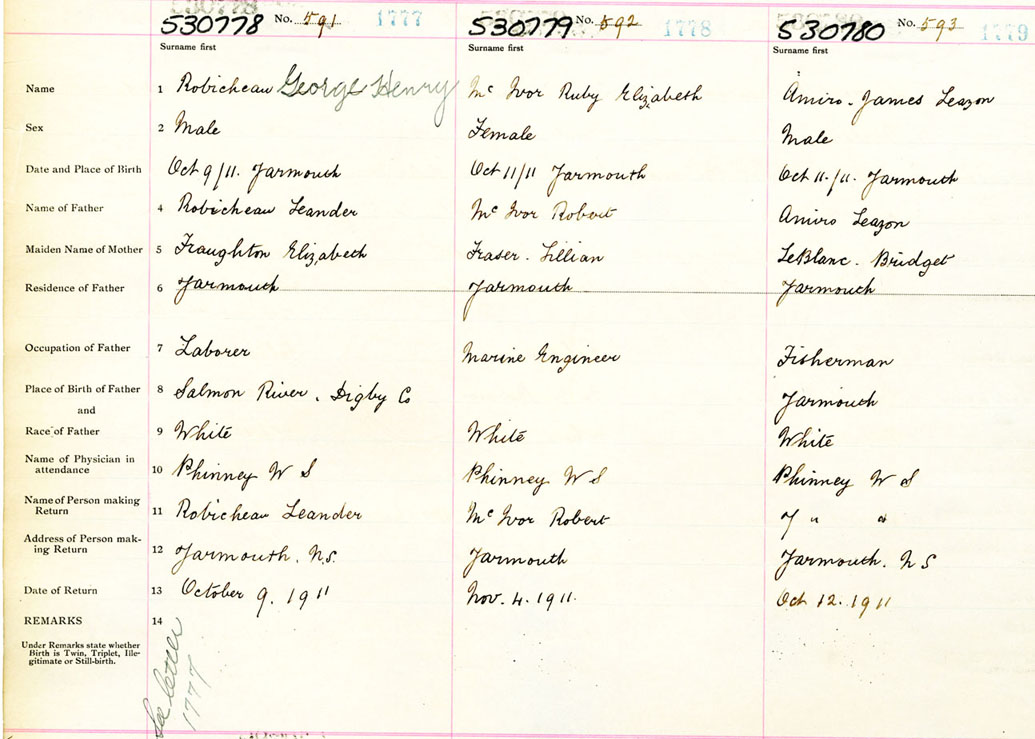 530778 No. 591 1777 530779 No. 592 1778 530780 No. 593 1779
Surname first Surname first Surname first
Name 1 Robicheau George Henry Mc Ivor Ruby Elizabeth Amiro. James Leazon
Sex 2 Male Female Male
Date and Place of Birth 3 Oct 9/11. Yarmouth Oct 11/11 Yarmouth Oct 11./11. Yarmouth
Name of Father 4 Robicheau Leander Mc Ivor Robert Amiro Leazon
Maiden Name of Mother 5 Fraughton Elizabeth Fraser. Lillian LeBlanc. Bridget
Residence of Father 6 Yarmouth Yarmouth Yarmouth
Occupation of Father 7 Laborer Marine Engineer Fisherman
Place of Birth of Father 8 Salmon River, Digby Co Yarmouth
and
Race of Father 9 White White White
Name of Physician in
attendance 10 Phinney W S Phinney W S Phinney W S
Name of Person making
Return 11 Robicheau Leander Mc Ivor Robert " "
Address of Person mak-
ing Return 12 Yarmouth. N.S. Yarmouth Yarmouth. N S
Date of Return 13 October 9. 1911 Nov. 4. 1911. Oct 12. 1911
REMARKS 14
Under Remarks state whether
Birth is Twin, Triplet, Ille-
gitimate or Still-birth.
See letter
1777